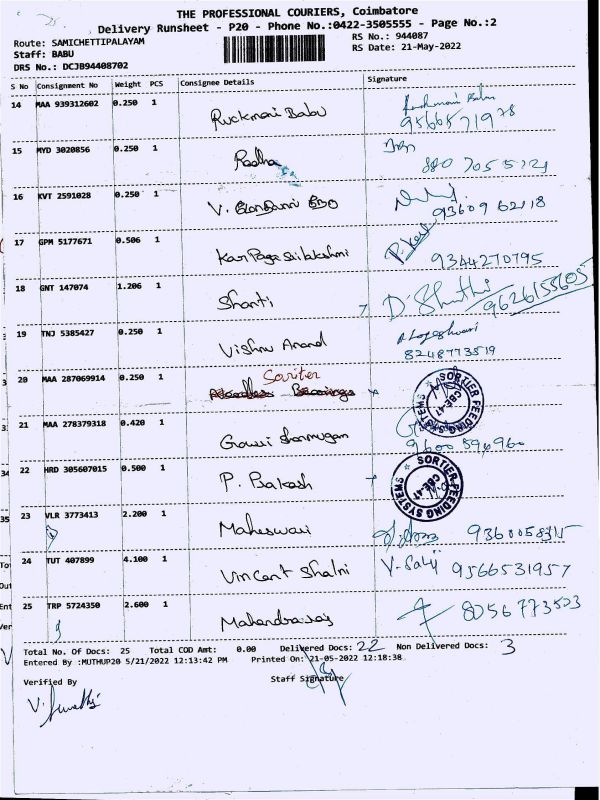 THE PROFESSIONAL COURIERS, Coimbatore
Delivery Runsheet - P20 - Phone No.:0422-3505555 - Page No.:2
Route: SAMICHETTIPALAYAM RS No.: 944087
Staff: BABU RS Date: 21-May-2022
DRS No.: DCJB94408702
S No Consignment No Weight PCS Consignee Details Signature
14 MAA 939312602 0.250 1 Ruckmani Babu
9566571978
15 MYD 3020856 0.250 1 Radha
16 KVT 2591028 0.250 1 V.
93609 62118
17 GPM 5177671 0.506 1 Karpaga Sailakshmi
9344270795
18 GNT 147074 1.206 1 Shanti D. Shanthi
9626155605
19 TNJ 5385427 0.250 1 Vishnu Anand
8248773519
20 MAA 287069914 0.250 1 Soriter
SORTIER FEEDING SYSTEMS
CBE-47
21 MAA 278379318 0.420 1 Gowri Shanmugam
22 HRD 305607015 0.500 1 P. Prakash
SORTIER FEEDING SYSTEMS
CBE-47
23 VLR 3773413 2.200 1 Maheswari
24 TUT 407899 4.100 1 Vincent Shalni
9566531957
25 TRP 5724350 2.600 1 Mahendraraj
8056773503
Total No. Of Docs: 25 Total COD Amt: 0.00 Delivered Docs: 22 Non Delivered Docs: 3
Entered By :MUTHUP20 5/21/2022 12:13:42 PM Printed On: 21-05-2022 12:18:38
Verified By Staff Signature